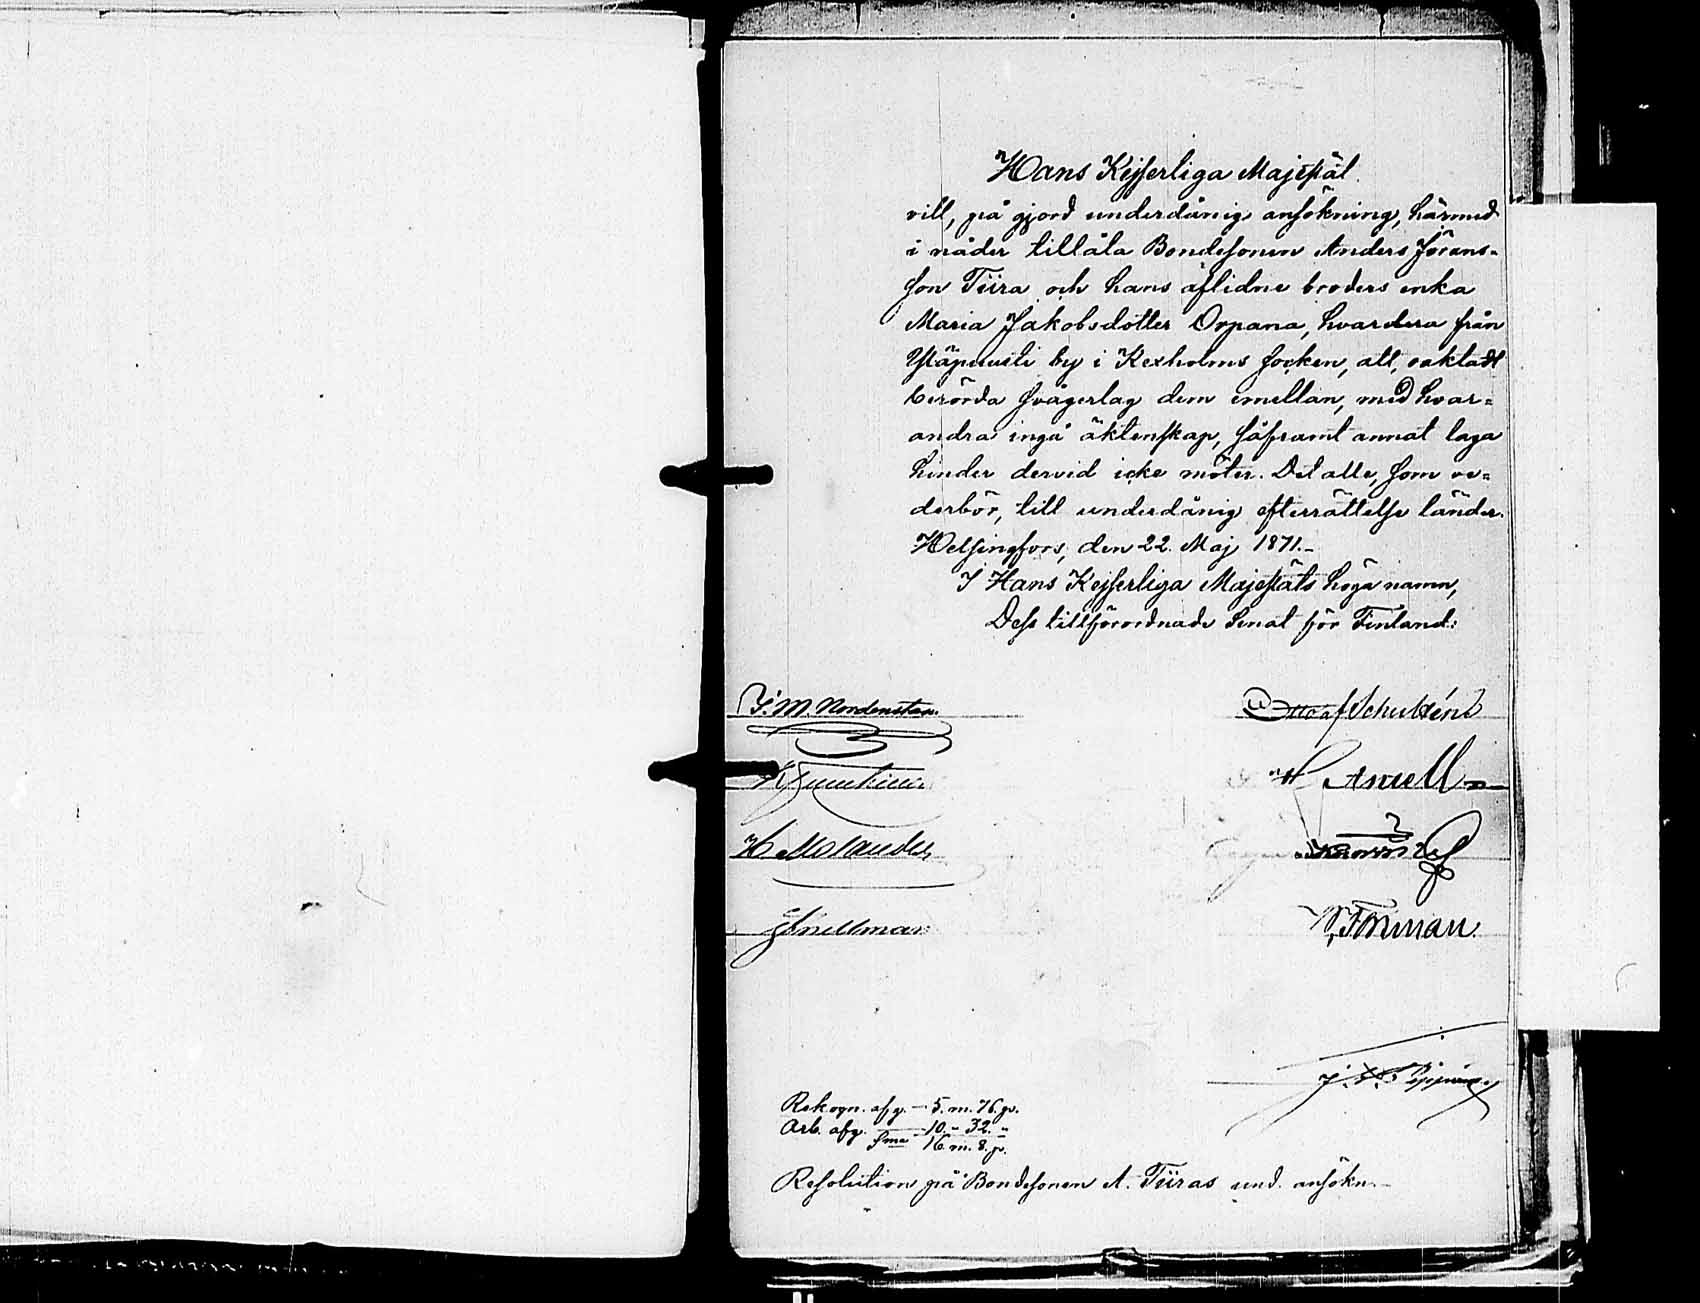 Hans Kejserliga Majestät
vill, på gjord underdånig ansökning, härmed
i nåder tillåta Bondesonen Anders Jörans-
son Tiira och hans aflidne broders enka
Maria Jakobsdotter Orpana, hvardera från
by i Kexholms socken, att, oaktadt
berörda svågerlag dem emellan, med hvar-
andra ingå äktenskap, såframt annat laga
hinder dervid icke möter. Det alle, som ve-
derbör, till underdånig efterrättelse länder.
Helsingfors, den 22. Maj 1871.-
I Hans Kejserliga Majestäts höga namn,
Dess tillförordnade Senat för Finland:
J. M. Nordenstam.
Otto af Schultén
H Molander
Snellman
J. Pippingsköld
Rekogn. afg. - 5. m. 76. p.
Arb. afg. - 10. " 32. "
Sma 16 m. 8. p.
Resolution på Bondesonen A. Tiiras und. ansökn.-